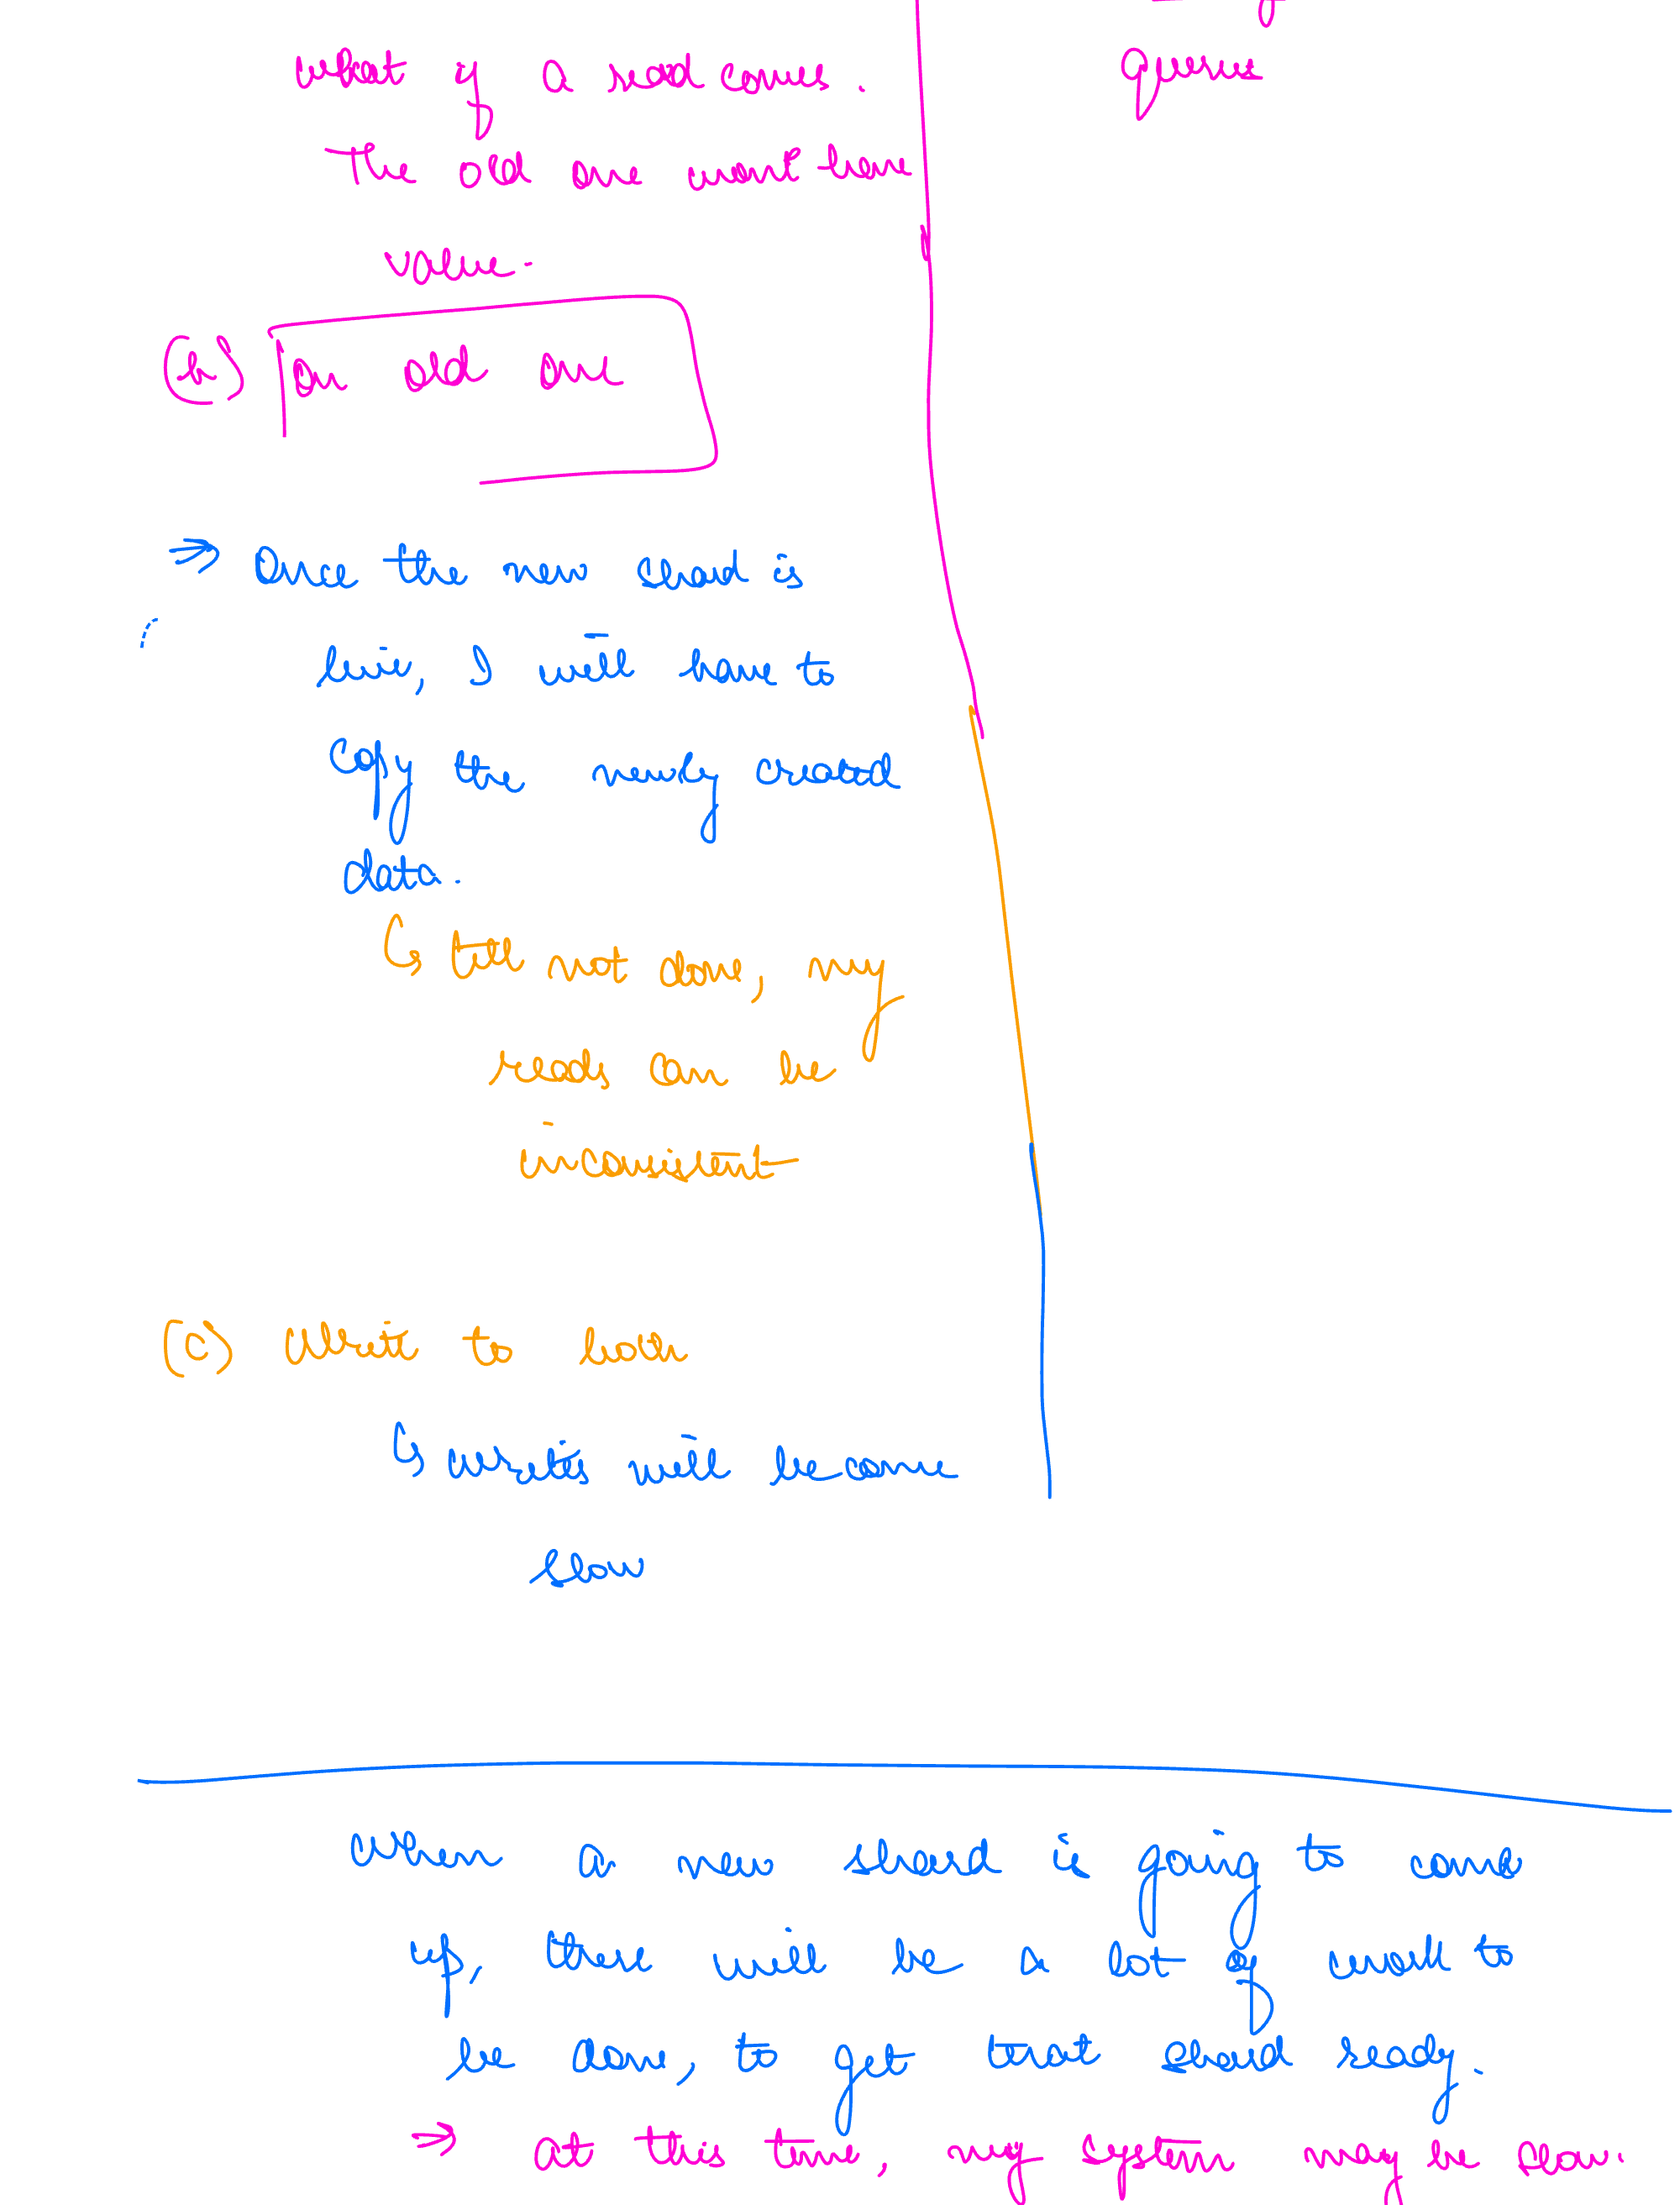 what if a read comes.
The old one won't have
value.
(b) on old one
→ Once the new shard is
live, I will have to
copy the newly created
data.
↳ till not done, my
reads can be
inconsistent
(c) Write to both
↳ writes will become
slow
queue
When a new shard is going to come
up, there will be a lot of work to
be done, to get that shard ready.
→ at this time, my system may be slow.